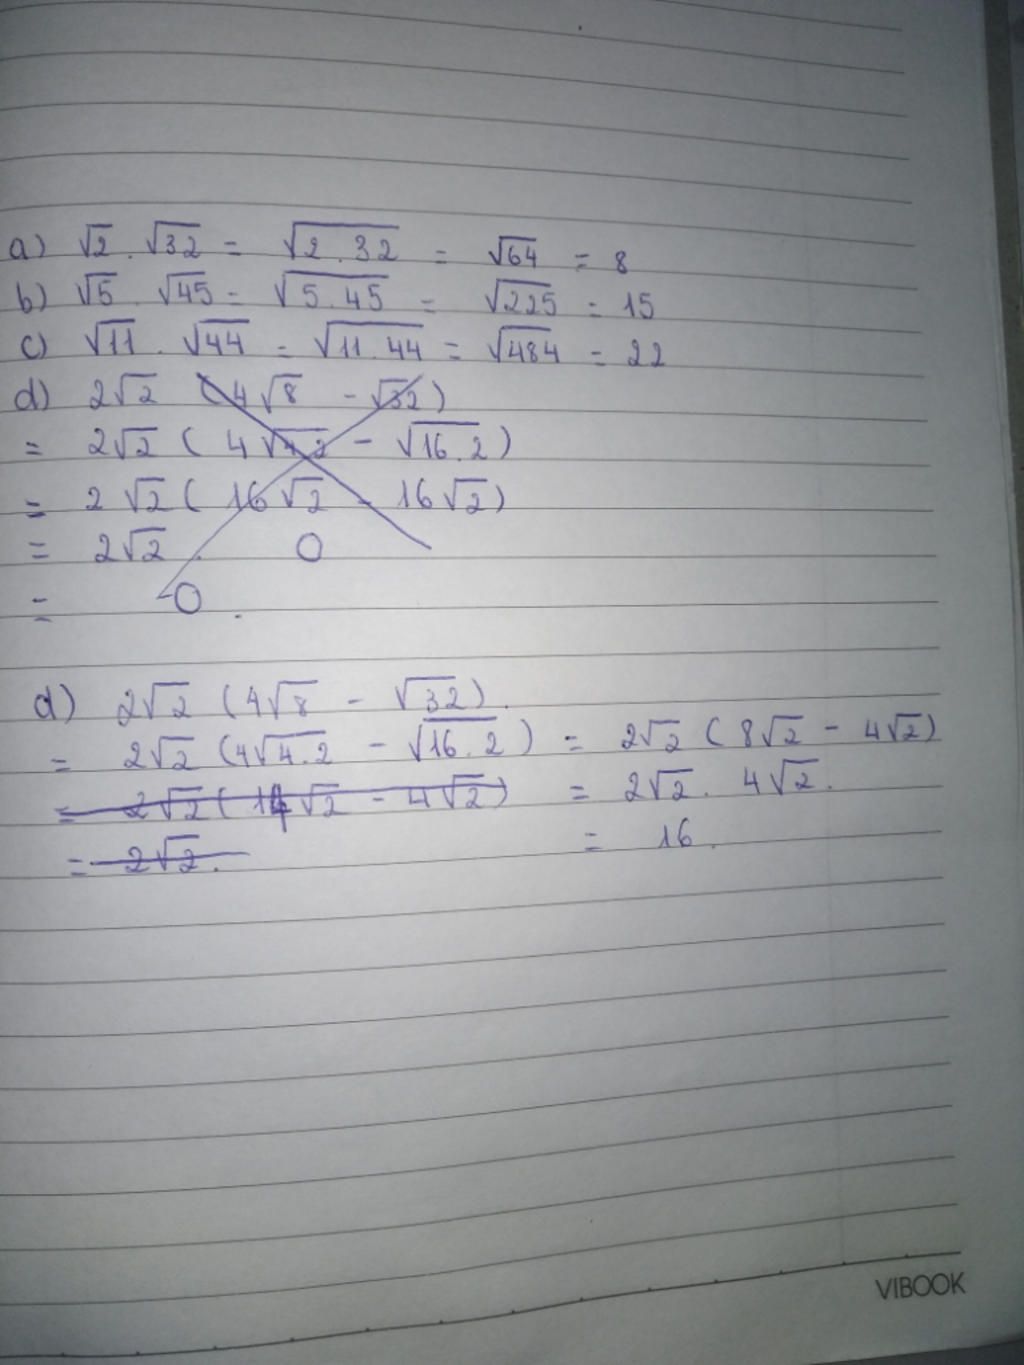 a) √2 . √32 = √2.32 = √64 = 8
b) √5 . √45 = √5.45 = √225 = 15
c) √11 . √44 = √11.44 = √484 = 22
d) 2√2 (4√8 - √32)
= 2√2 ( 4√4.2 - √16.2 )
= 2√2 ( 16√2 - 16√2 )
= 2√2 . 0
= 0 .
d) 2√2 (4√8 - √32) .
= 2√2 (4√4.2 - √16.2 ) = 2√2 ( 8√2 - 4√2 )
= 2√2 ( 14√2 - 4√2 ) = 2√2 . 4√2 .
= 2√2 . = 16 .
VIBOOK